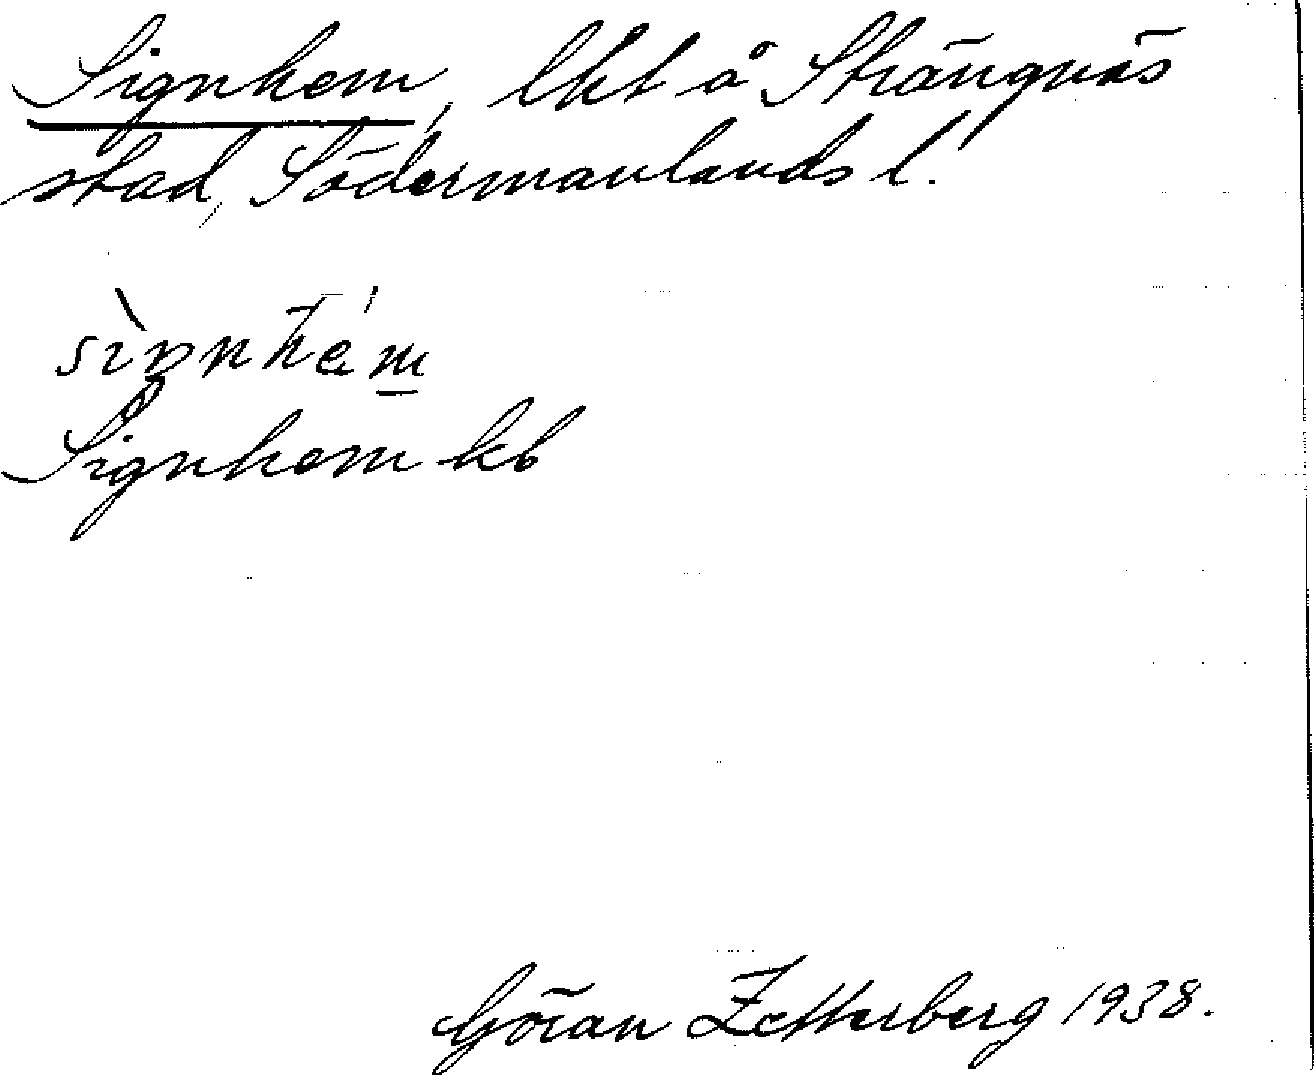 Signhem, lht å Strängnäs
stad, Södermanlands l.
Signhem kb
Göran Zetterberg 1938.